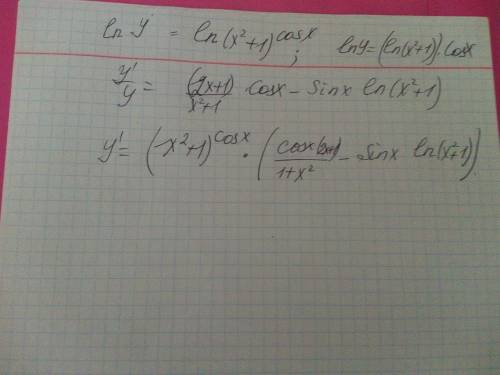 ln y = ln(x²+1)^cosx ; lny = (ln(x²+1))·cosx
y'/y = (2x+1)/(x²+1) · cosx - sinx ln(x²+1)
y' = (x²+1)^cosx · (cosx(2x+1)/(1+x²) - sinx ln(x²+1))